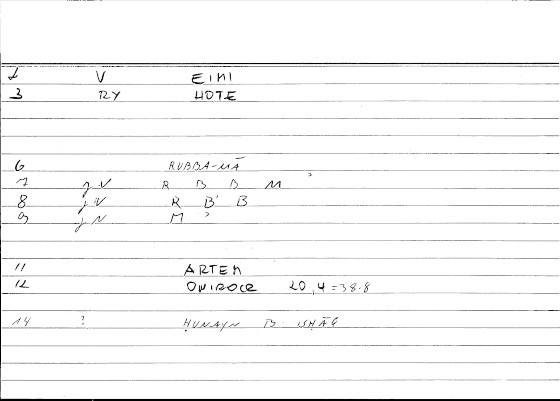 1 V EIMI
3 RY HOTE
6 RUBBA-MĀ
7 jV R B B M ʾ
8 jV R Bʾ B
9 jN M ʾ
11 ARTEM
12 ONIROCR 20,4=38.8
14 ? ḤUNAYN B. ISḤĀQ